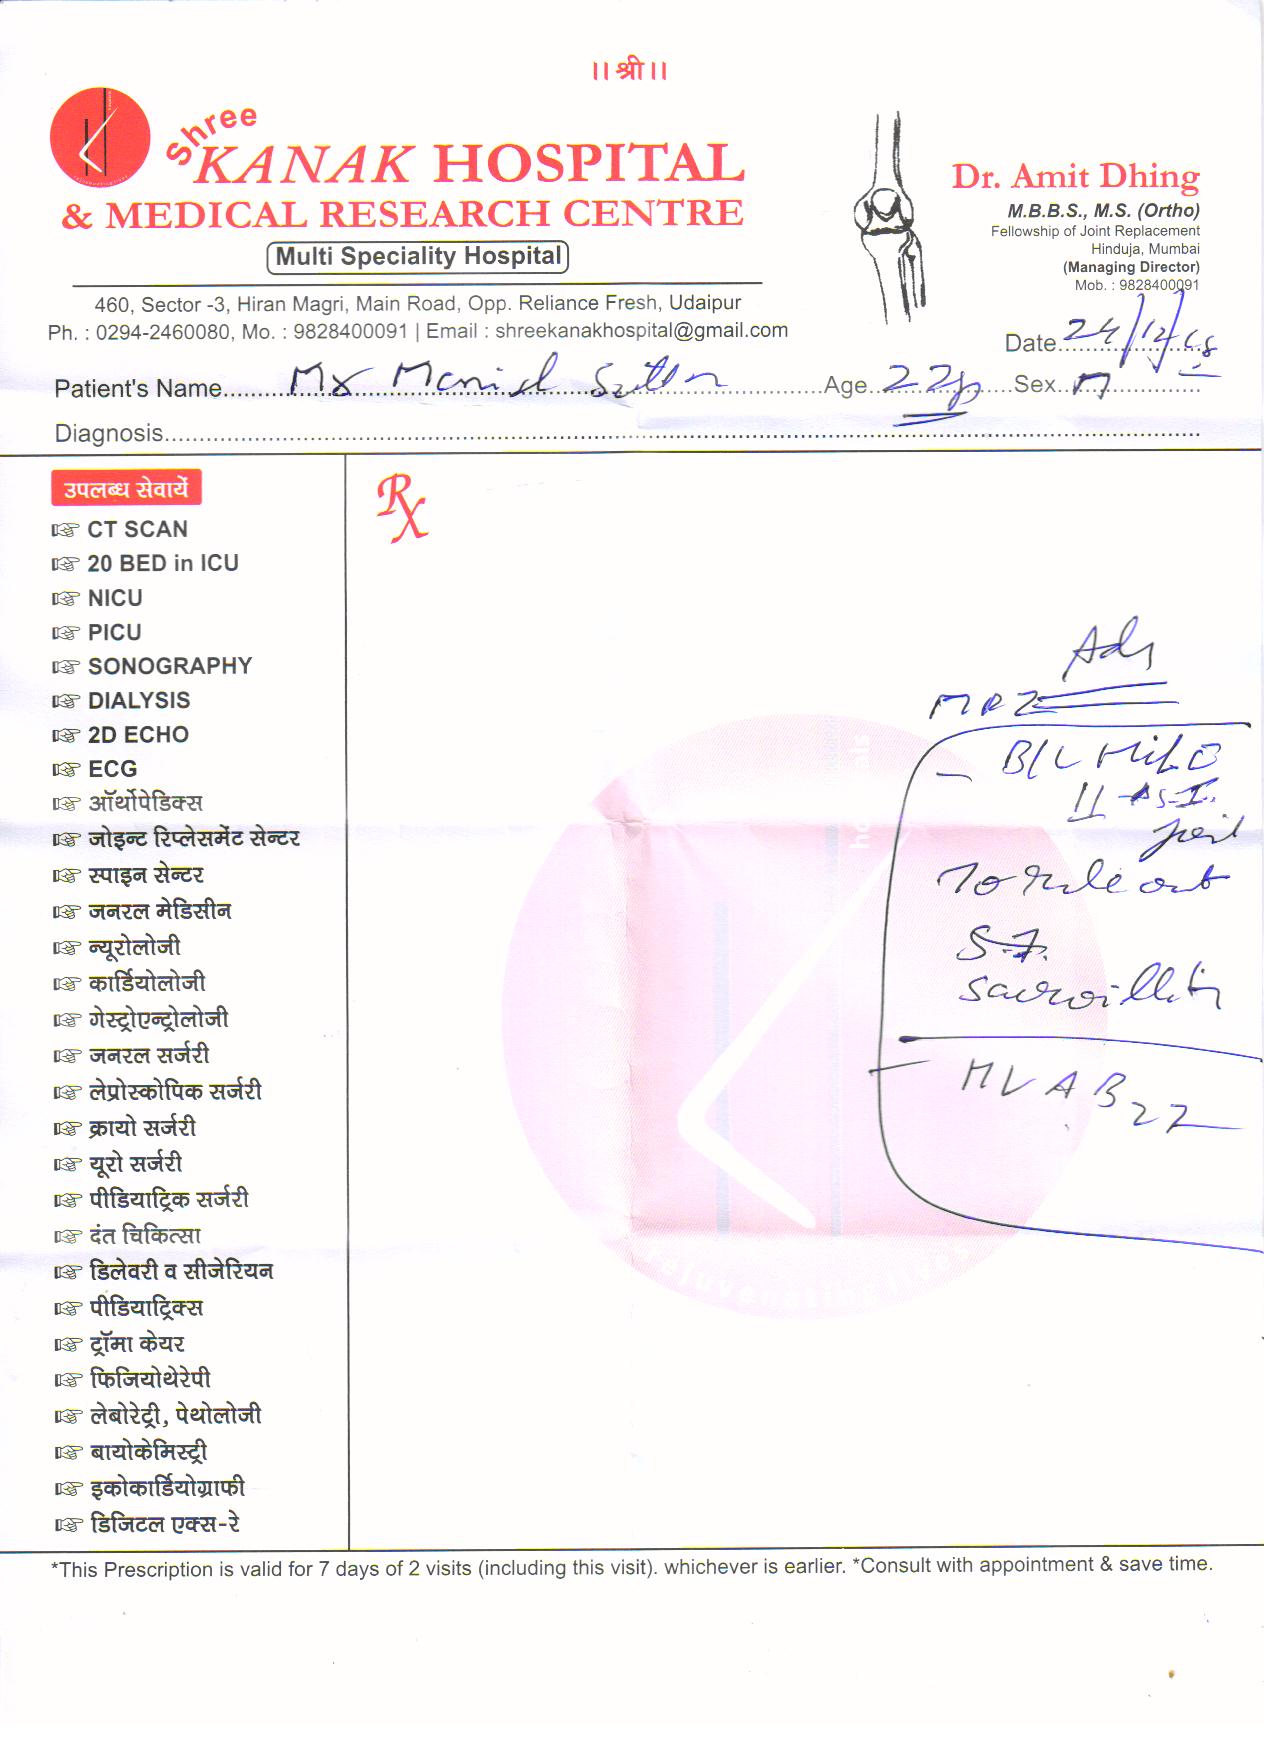 ॥ श्री ॥
Shree
KANAK HOSPITAL
& MEDICAL RESEARCH CENTRE
Multi Speciality Hospital
460, Sector -3, Hiran Magri, Main Road, Opp. Reliance Fresh, Udaipur
Ph. : 0294-2460080, Mo. : 9828400091 | Email : shreekanakhospital@gmail.com
Dr. Amit Dhing
M.B.B.S., M.S. (Ortho)
Fellowship of Joint Replacement
Hinduja, Mumbai
(Managing Director)
Mob. : 9828400091
Date 24/12/18
Patient's Name Mr Manish Age 22 Sex M
Diagnosis
उपलब्ध सेवायें
CT SCAN
20 BED in ICU
NICU
PICU
SONOGRAPHY
DIALYSIS
2D ECHO
ECG
ऑर्थोपेडिक्स
जोइन्ट रिप्लेसमेंट सेन्टर
स्पाइन सेन्टर
जनरल मेडिसीन
न्यूरोलोजी
कार्डियोलोजी
गेस्ट्रोएन्ट्रोलोजी
जनरल सर्जरी
लेप्रोस्कोपिक सर्जरी
क्रायो सर्जरी
यूरो सर्जरी
पीडियाट्रिक सर्जरी
दंत चिकित्सा
डिलेवरी व सीजेरियन
पीडियाट्रिक्स
ट्रॉमा केयर
फिजियोथेरेपी
लेबोरेट्री, पेथोलोजी
बायोकेमिस्ट्री
इकोकार्डियोग्राफी
डिजिटल एक्स-रे
Rx
Adv
MRI
- B/L Hip
S.I.
joint
To rule out
S.I.
- HLA B27
rejuvenating lives
*This Prescription is valid for 7 days of 2 visits (including this visit). whichever is earlier. *Consult with appointment & save time.